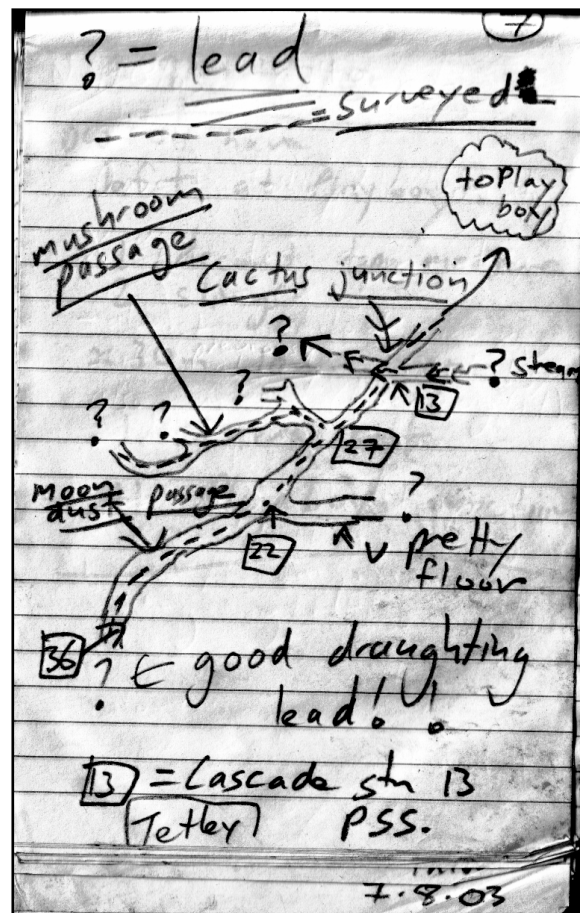 7
? = lead
= surveyed
to Play
box
mushroom
passage
Cactus junction
?
? stream
13
?
? ?
27
moon passage
dust
?
22
v pretty
floor
36
? ← good draughting
lead! !
13 = Cascade stn 13
Tetley PSS.
7.8.03